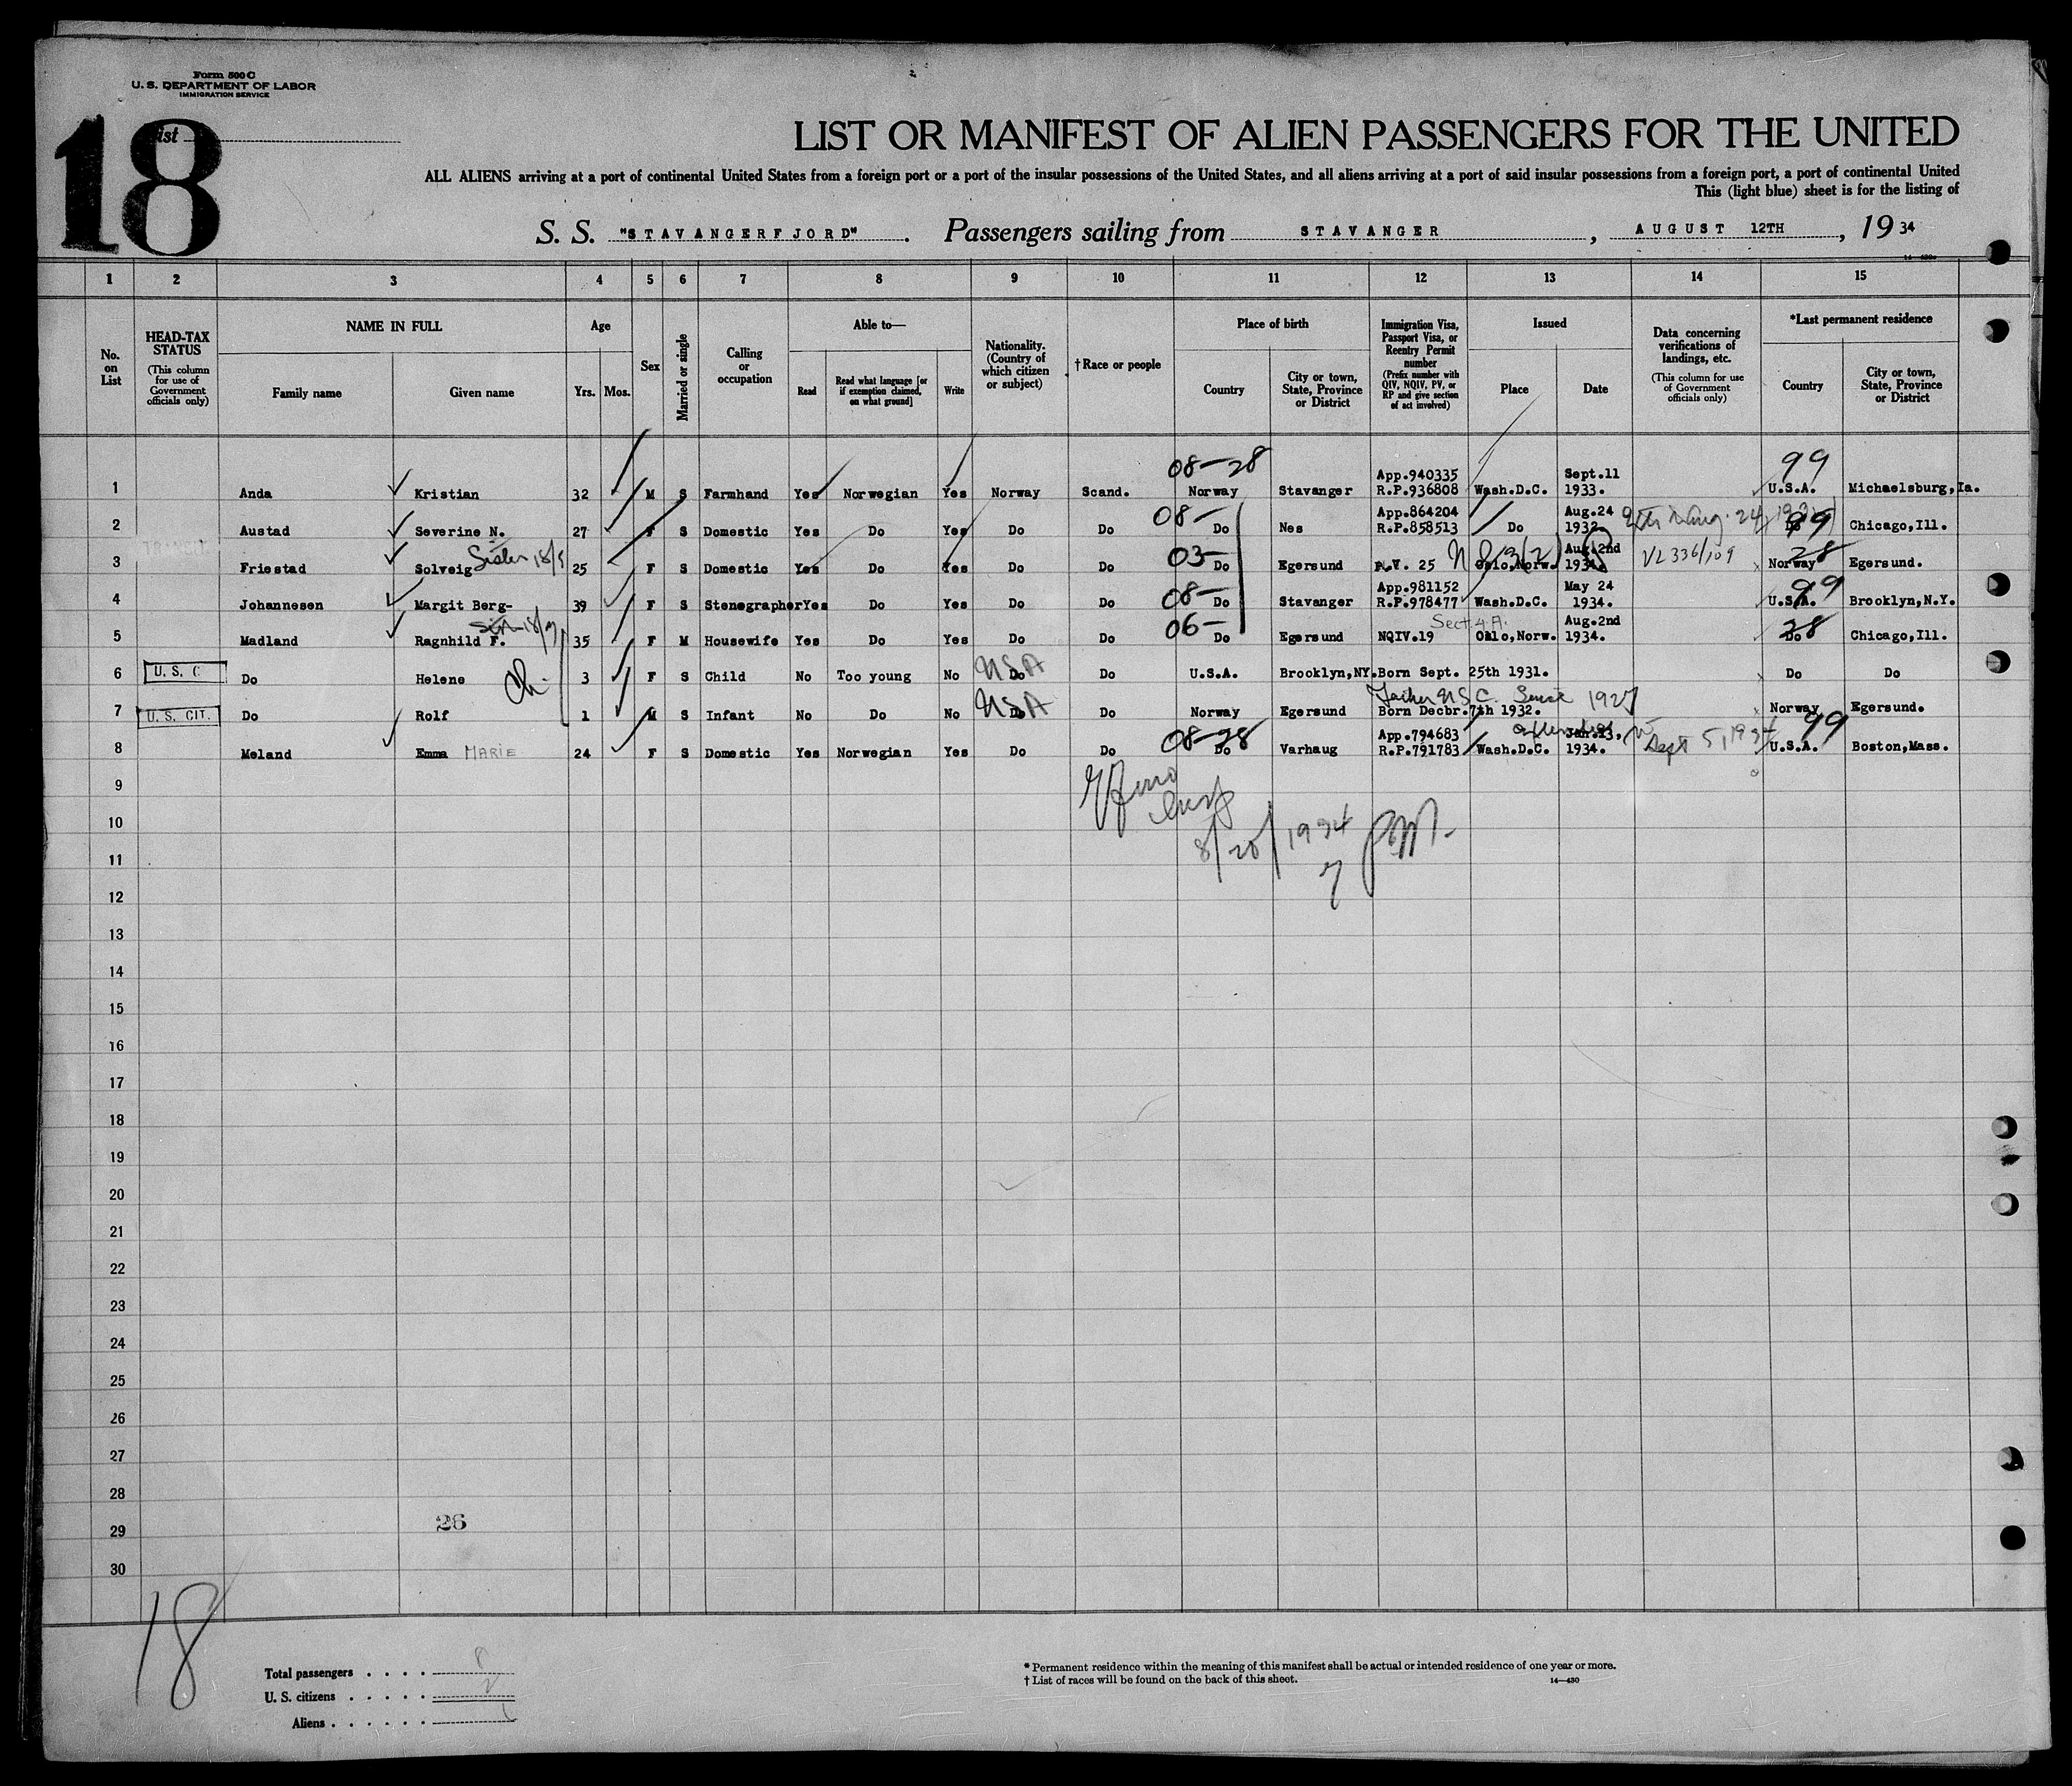 Form 500 C
U. S. DEPARTMENT OF LABOR
IMMIGRATION SERVICE
18
List
LIST OR MANIFEST OF ALIEN PASSENGERS FOR THE UNITED
ALL ALIENS arriving at a port of continental United States from a foreign port or a port of the insular possessions of the United States, and all aliens arriving at a port of said insular possessions from a foreign port, a port of continental United
This (light blue) sheet is for the listing of
S. S. "STAVANGERFJORD". Passengers sailing from STAVANGER, AUGUST 12TH, 19 34
14—430
1 2 3 4 5 6 7 8 9 10 11 12 13 14 15
No. on List
HEAD-TAX STATUS (This column for use of Government officials only)
NAME IN FULL
Family name Given name
Age
Yrs. Mos.
Sex
Married or single
Calling or occupation
Able to—
Read Read what language [or if exemption claimed, on what ground] Write
Nationality. (Country of which citizen or subject)
†Race or people
Place of birth
Country City or town, State, Province or District
Immigration Visa, Passport Visa, or Reentry Permit number (Prefix number with QIV, NQIV, PV, or RP and give section of act involved)
Issued
Place Date
Data concerning verifications of landings, etc. (This column for use of Government officials only)
*Last permanent residence
Country City or town, State, Province or District
08-28 App.940335 Sept.11 99
1 Anda Kristian 32 M S Farmhand Yes Norwegian Yes Norway Scand. Norway Stavanger R.P.936808 Wash.D.C. 1933. U.S.A. Michaelsburg,Ia.
08- App.864204 Aug.24
2 Austad Severine N. 27 F S Domestic Yes Do Yes Do Do Do Nes R.P.858513 Do 1932 Aug. 24, 99 Do Chicago,Ill.
TRANSIT Sister 03- Aug.2nd 28
3 Friestad Solveig 25 F S Domestic Yes Do Yes Do Do Do Egersund P.V. 25 3(2) Oslo,Norw. 1934. VL 336/109 Norway Egersund.
08- App.981152 May 24 99
4 Johannesen Margit Berg- 39 F S Stenographer Yes Do Yes Do Do Do Stavanger R.P.978477 Wash.D.C. 1934. U.S.A. Brooklyn,N.Y.
06- Sect. 4 A. Aug.2nd 28
5 Madland Ragnhild F. 35 F M Housewife Yes Do Yes Do Do Do Egersund NQIV.19 Oslo,Norw. 1934. Do Chicago,Ill.
6 U. S. C Do Helene Ch. 3 F S Child No Too young No Do USA Do U.S.A. Brooklyn,NY. Born Sept. 25th 1931. Do Do
Father U S C. Since 1927
7 U. S. CIT. Do Rolf 1 M S Infant No Do No Do USA Do Norway Egersund Born Decbr.7th 1932. Norway Egersund.
08-28 App.794683 Jan.23, 99
8 Meland Emma MARIE 24 F S Domestic Yes Norwegian Yes Do Do Do Varhaug R.P.791783 Wash.D.C. 1934. Sept 5, 1934 U.S.A. Boston,Mass.
9
10
8/20/1934
11
12
13
14
15
16
17
18
19
20
21
22
23
24
25
26
27
28
29 26
30
18
Total passengers . . . . 8
U. S. citizens . . . . . 2
Aliens . . . . . .
* Permanent residence within the meaning of this manifest shall be actual or intended residence of one year or more.
† List of races will be found on the back of this sheet. 14—430